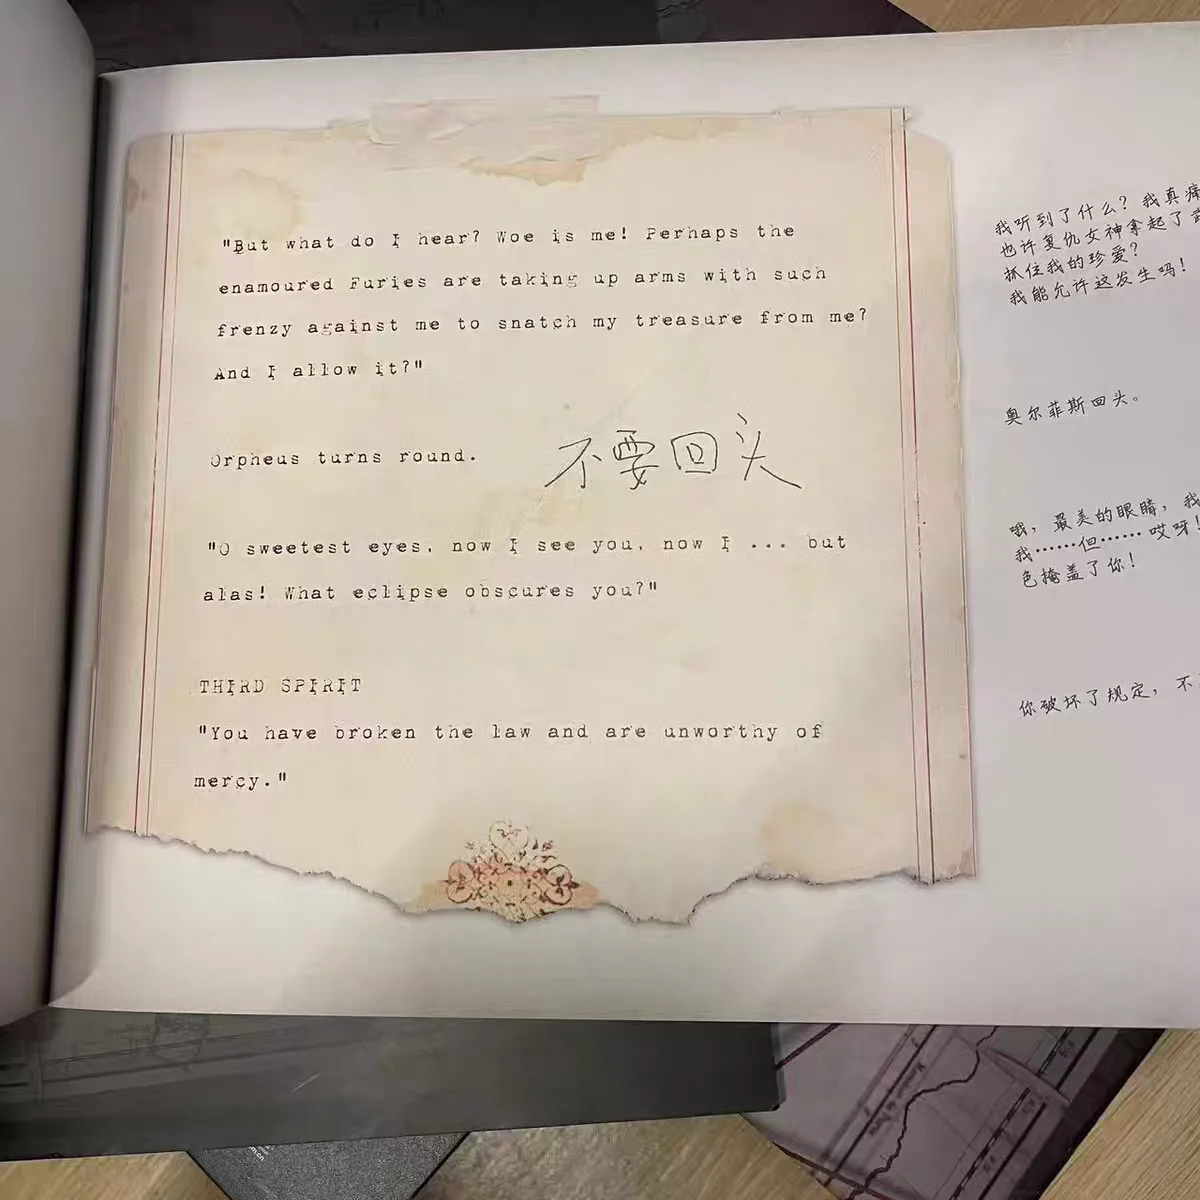 "But what do I hear? Woe is me! Perhaps the
enamoured Furies are taking up arms with such
frenzy against me to snatch my treasure from me?
And I allow it?"
Orpheus turns round.
不要回头
"O sweetest eyes, now I see you, now I ... but
alas! What eclipse obscures you?"
THIRD SPIRIT
"You have broken the law and are unworthy of
mercy."
我听到了什么？我真痛
也许复仇女神拿起了
抓住我的珍爱？
我能允许这发生吗！
奥尔菲斯回头。
哦，最美的眼睛，我
我……但……哎呀！
色掩盖了你！
你破坏了规定，不